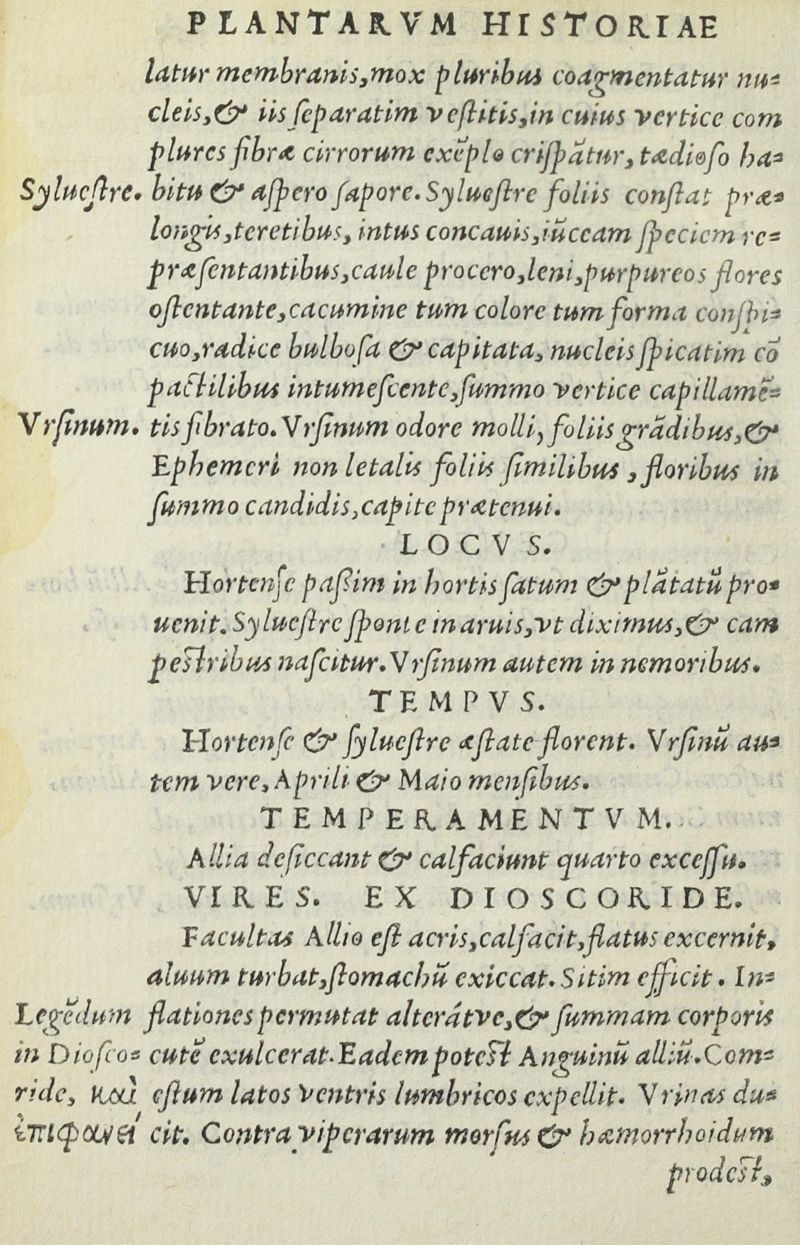 PLANTARVM HISTORIAE
latur membranis, mox pluribus coagmentatur nu-
cleis, & iis ſeparatim veſtitis, in cuius vertice com
plures fibræ cirrorum exẽplo criſpãtur, tædioſo ha-
Sylueſtre. bitu & aſpero ſapore. Sylueſtre foliis conſtat præ-
longis, teretibus, intus concauis, iũceam ſpeciem re-
præſentantibus, caule procero, leni, purpureos flores
oſtentante, cacumine tum colore tum forma conſpi-
cuo, radice bulboſa & capitata, nucleis ſpicatim cõ
pactilibus intumeſcente, ſummo vertice capillamẽ-
Vrſinum. tis fibrato. Vrſinum odore molli, foliis grãdibus, &
Ephemeri non letalis foliis ſimilibus, floribus in
ſummo candidis, capite prætenui.
LOCVS.
Hortenſe paſſim in hortis ſatum & plãtatũ pro-
uenit. Sylueſtre ſponte in aruis, vt diximus, & cam
peſtribus naſcitur. Vrſinum autem in nemoribus.
TEMPVS.
Hortenſe & ſylueſtre æſtate florent. Vrſinũ au-
tem vere, Aprili & Maio menſibus.
TEMPERAMENTVM.
Allia deſiccant & calfaciunt quarto exceſſu.
VIRES. EX DIOSCORIDE.
Facultas Allio eſt acris, calfacit, flatus excernit,
aluum turbat, ſtomachũ exiccat. Sitim efficit. In-
Legẽdum flationes permutat alterátve, & ſummam corporis
in Dioſco- cutẽ exulcerat. Eadem poteſt Anguinũ alliũ. Com-
ride, καὶ eſtum latos ventris lumbricos expellit. Vrinas du-
ἐπιφανεί cit. Contra viperarum morſus & hæmorrhoidum
prodeſt,